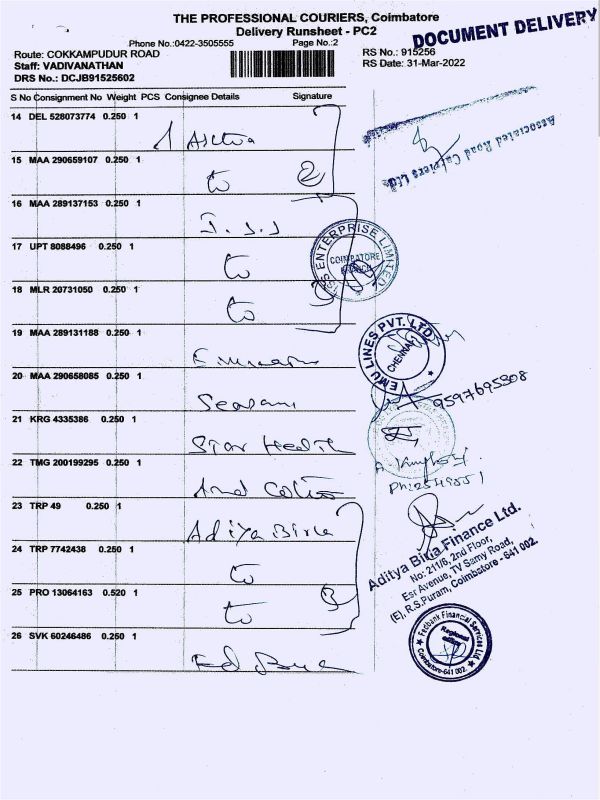 THE PROFESSIONAL COURIERS, Coimbatore
Delivery Runsheet - PC2
DOCUMENT DELIVERY
Phone No.:0422-3505555 Page No.:2
Route: COKKAMPUDUR ROAD RS No.: 915256
Staff: VADIVANATHAN RS Date: 31-Mar-2022
DRS No.: DCJB91525602
S No Consignment No Weight PCS Consignee Details Signature
14 DEL 528073774 0.250 1
Associated Road Carriers Ltd.
15 MAA 290659107 0.250 1
to 2
16 MAA 289137153 0.250 1
17 UPT 8088496 0.250 1
to
ENTERPRISE LIMITED
COIMBATORE
18 MLR 20731050 0.250 1
to
19 MAA 289131188 0.250 1
EMU LINES PVT. LTD.
CHENNAI
20 MAA 290658085 0.250 1
9597695308
21 KRG 4335386 0.250 1
Star Health
22 TMG 200199295 0.250 1
23 TRP 49 0.250 1
Aditya Birla
24 TRP 7742438 0.250 1
to
25 PRO 13064163 0.520 1
to
Aditya Birla Finance Ltd.
No: 211/6, 2nd Floor,
Esr Avenue, TV Samy Road,
(E), R.S.Puram, Coimbatore - 641 002.
26 SVK 60246486 0.250 1
Fedbank Financial Services Ltd
Regional
office
Coimbatore-641 002.